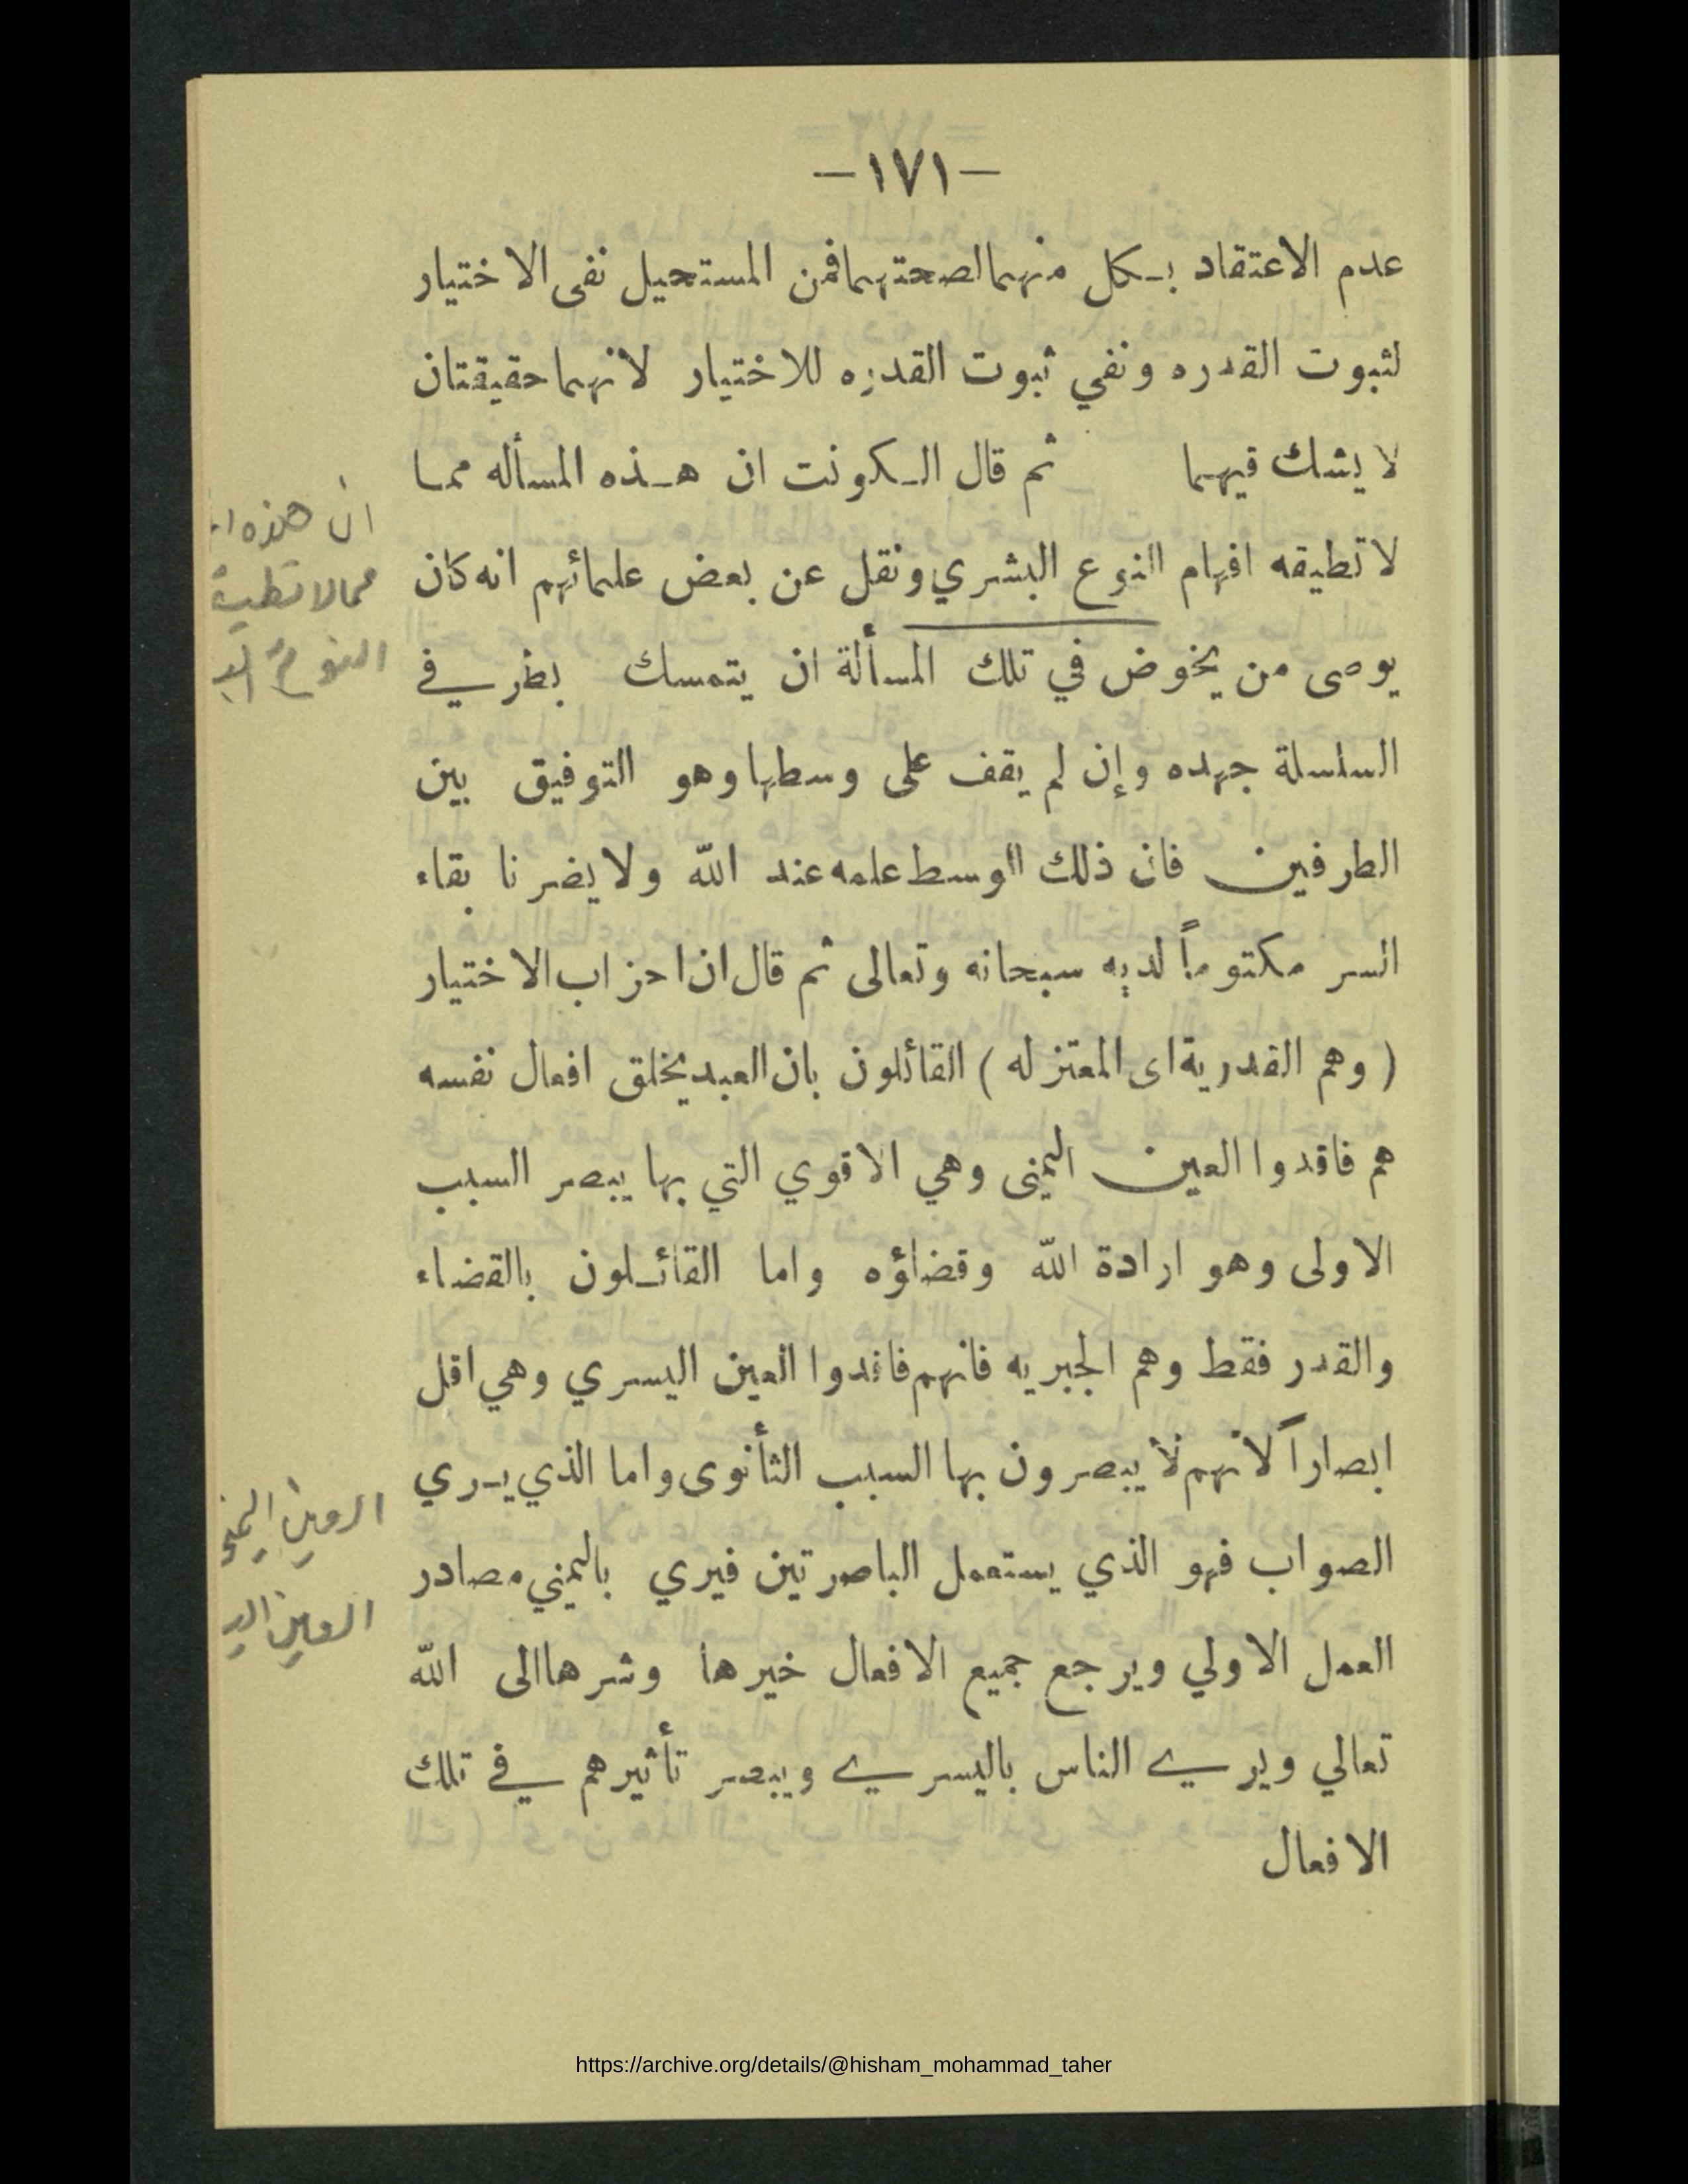 -١٧١-
عدم الاعتقاد بـكل منهما لصحتهما فمن المستحيل نفى الاختيار
لثبوت القدره ونفي ثبوت القدره للاختيار لانهما حقيقتان
لا يشك فيهما ثم قال الـكونت ان هـذه المسأله ممـا
لا تطيقه افهام النوع البشري ونقل عن بعض علمائهم انه كان
يوصى من يخوض في تلك المسألة ان يتمسك بطرفي
السلسلة جهده وإن لم يقف على وسطها وهو التوفيق بين
الطرفين فان ذلك الوسط علمه عند الله ولا يضرنا بقاء
السر مكتوماً لديه سبحانه وتعالى ثم قال ان احزاب الاختيار
( وهم القدرية اى المعتزله ) القائلون بان العبد يخلق افعال نفسه
هم فاقدوا العين اليمنى وهي الاقوي التي بها يبصر السبب
الاولى وهو ارادة الله وقضاؤه واما القائـلون بالقضاء
والقدر فقط وهم الجبريه فانهم فاقدوا العين اليسري وهي اقل
ابصاراً لانهم لا يبصرون بها السبب الثأنوى واما الذي يـري
الصواب فهو الذي يستعمل الباصرتين فيري باليمني مصادر
العمل الاولي ويرجع جميع الافعال خيرها وشرها الى الله
تعالي ويري الناس باليسري ويبصر تأثيرهم في تلك
الافعال
ان هذه
مما لا تطيقه
النوع
العين اليمنى
العين
https://archive.org/details/@hisham_mohammad_taher